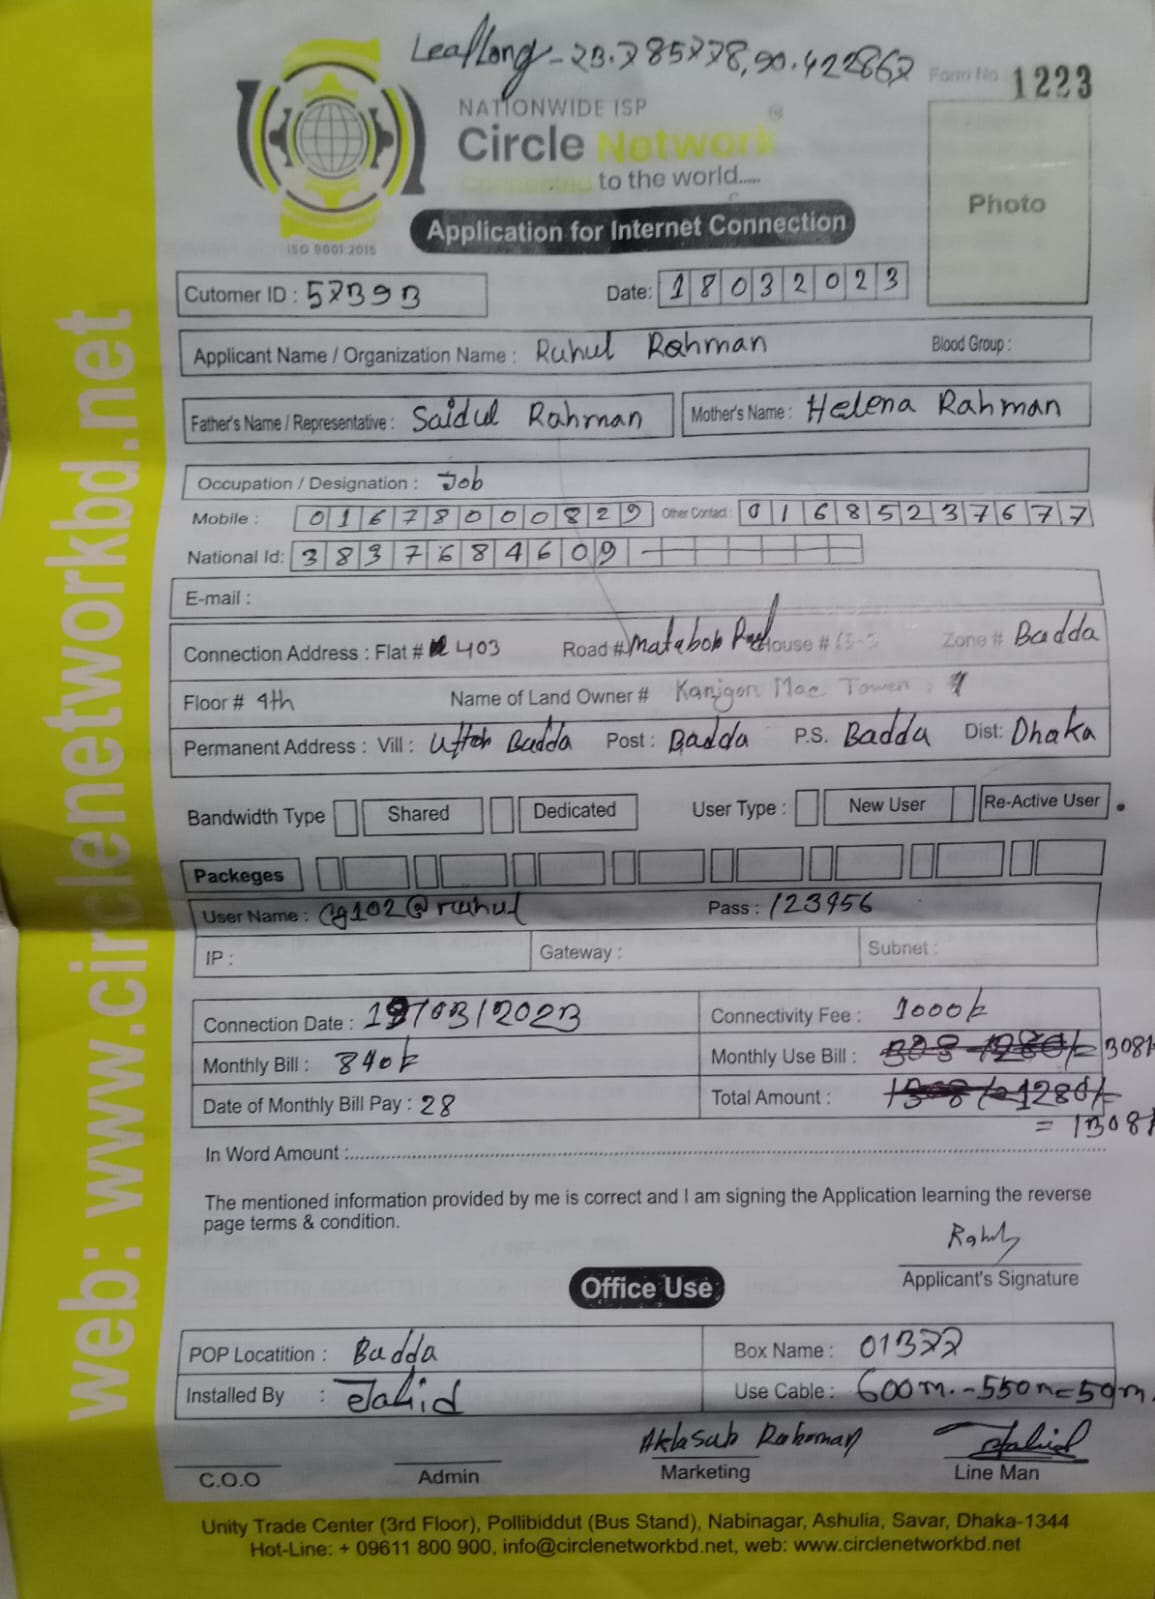 23.785778, 90.422867
Form No 1223
NATIONWIDE ISP
Circle Network
Connected to the world.....
ISO 9001:2015
Photo
Application for Internet Connection
Cutomer ID : 57393
Date: 18032023
Applicant Name / Organization Name : Ruhul Rahman Blood Group :
Father's Name / Representative : Saidul Rahman Mother's Name : Helena Rahman
Occupation / Designation : Job
Mobile : 01678000829 Other Contact : 01685237677
National Id: 3837684609
E-mail :
Connection Address : Flat # 403 Road # House # Zone # Badda
Floor # 4th Name of Land Owner #
Permanent Address : Vill : Badda Post : Badda P.S. Badda Dist: Dhaka
Bandwidth Type Shared Dedicated User Type : New User Re-Active User
Packeges
User Name : cg102@ruhul Pass : 123456
IP : Gateway : Subnet :
Connection Date : 19/03/2023 Connectivity Fee : 1000/-
Monthly Bill : 840/- Monthly Use Bill : 308/-
Date of Monthly Bill Pay : 28 Total Amount :
= 1308/-
In Word Amount :
The mentioned information provided by me is correct and I am signing the Application learning the reverse
page terms & condition.
Applicant's Signature
Office Use
POP Locatition : Badda Box Name : 01377
Installed By : Jahid Use Cable : 600m.-550m=50m.
C.O.O Admin Marketing Line Man
Unity Trade Center (3rd Floor), Pollibiddut (Bus Stand), Nabinagar, Ashulia, Savar, Dhaka-1344
Hot-Line: + 09611 800 900, info@circlenetworkbd.net, web: www.circlenetworkbd.net
web: www.circlenetworkbd.net